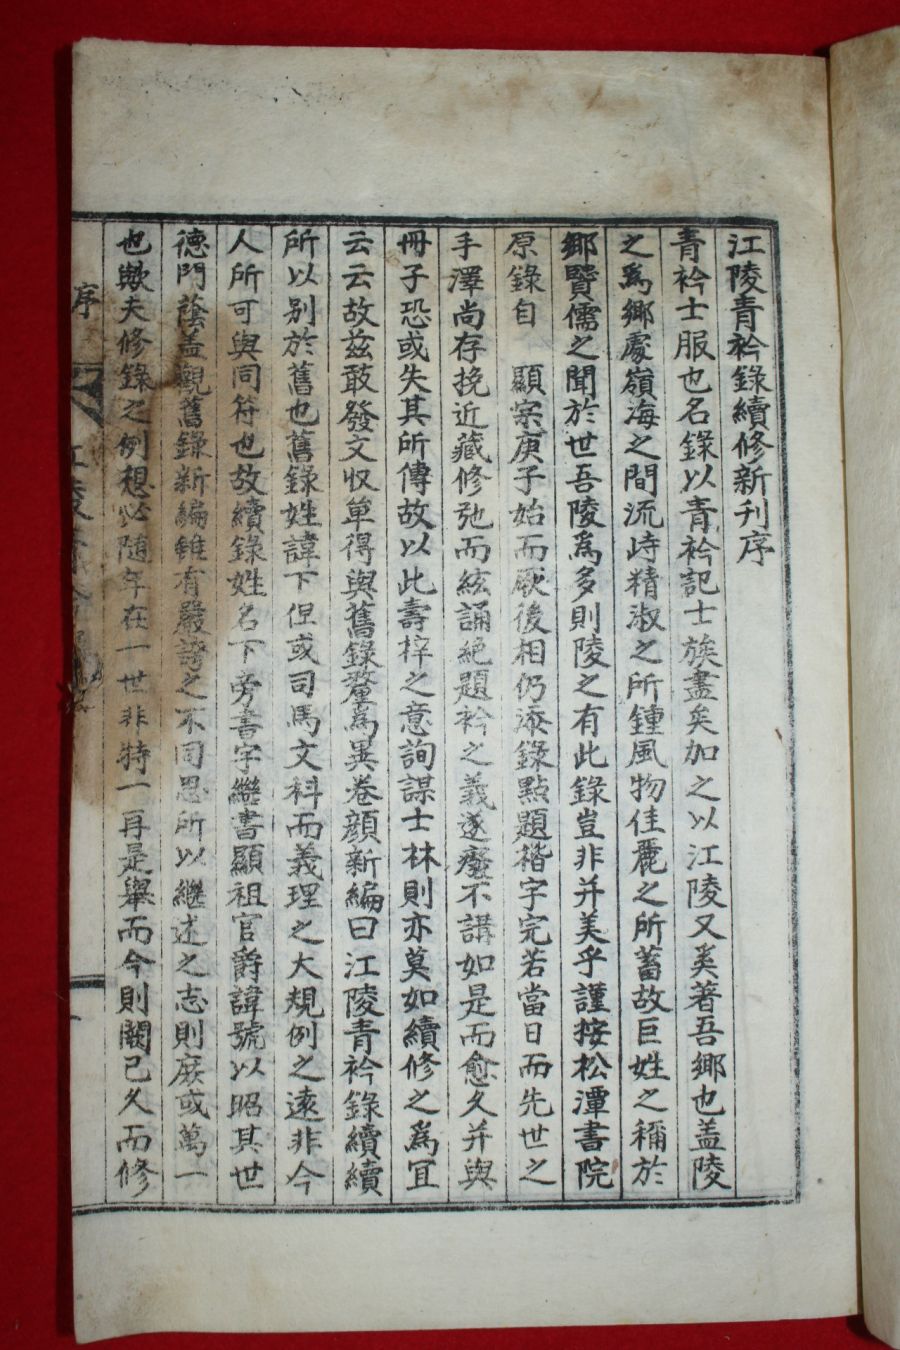 江陵青衿錄續修新刋序
青衿士服也名錄以青衿記士族盡矣加之以江陵又奚著吾鄉也盖陵
之爲鄉處嶺海之間流峙精淑之所鍾風物佳麗之所蓄故巨姓之稱於
鄉賢儒之聞於世吾陵爲多則陵之有此錄豈非并美乎謹按松潭書院
原錄自 顯宗庚子始而厥後相仍添錄點題楷字完若當日而先世之
手澤尚存挽近藏修弛而絃誦絶題衿之義遂癈不講如是而愈久并與
冊子恐或失其所傳故以此壽梓之意詢謀士林則亦莫如續修之爲宜
云云故玆敢發文収单得與舊錄釐爲異卷顔新編曰江陵青衿錄續續
所以别於舊也舊錄姓諱下但或司馬文科而義理之大規例之遠非今
人所可與同符也故續錄姓名下旁書字繼書顯祖官爵諱號以昭其世
德門蔭盖觀舊錄新編雖有嚴之不同思所以繼述之志則庶或萬一
也歟夫修錄之例想必随年在一世非特一再是舉而今則闕已久而修
序